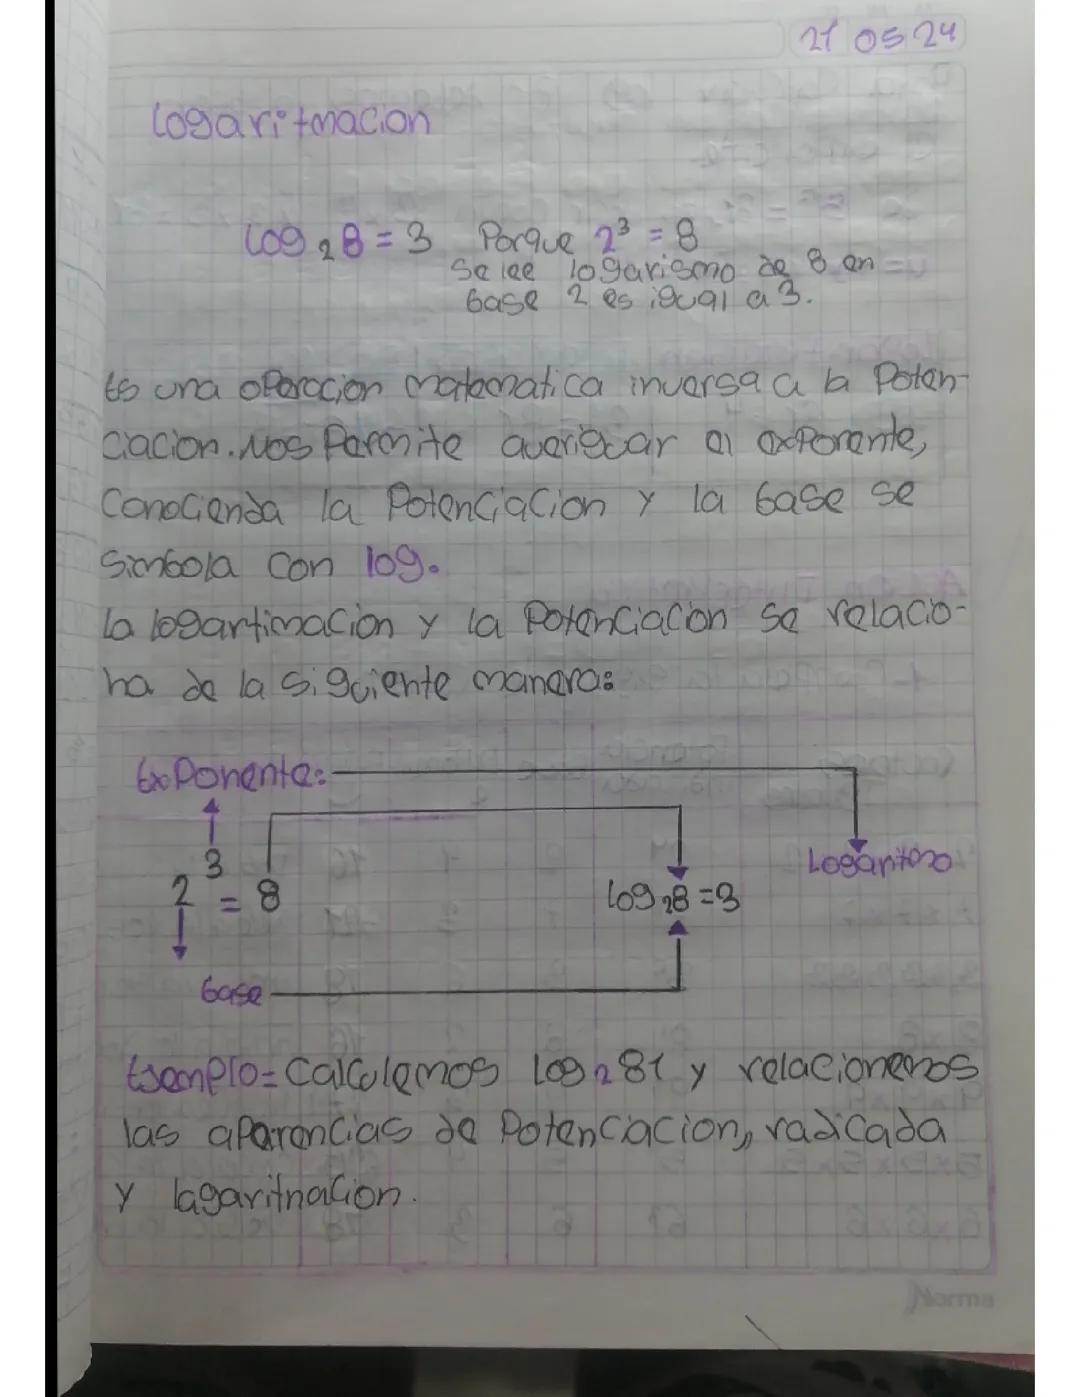 21 05 24
Logaritmacion
Log₂8=3 Porque 2³ = 8
Se lee logarismo de 8 en
base 2 es igual a 3.
Es una operacion matematica inversa a la Poten-
ciacion. Nos Permite averiguar el exponente,
Conocienda la Potenciacion y la base se
simbola con log.
La logartimacion y la Potenciacion se relacio-
na de la siguiente manera:
Exponente:
2³ = 8
Log₂8=3
Logaritmo
base
Ejemplo= Calculemos Log₂81 y relacionemos
las aparencias de Potenciacion, radicada
y lagaritnacion.
Norma